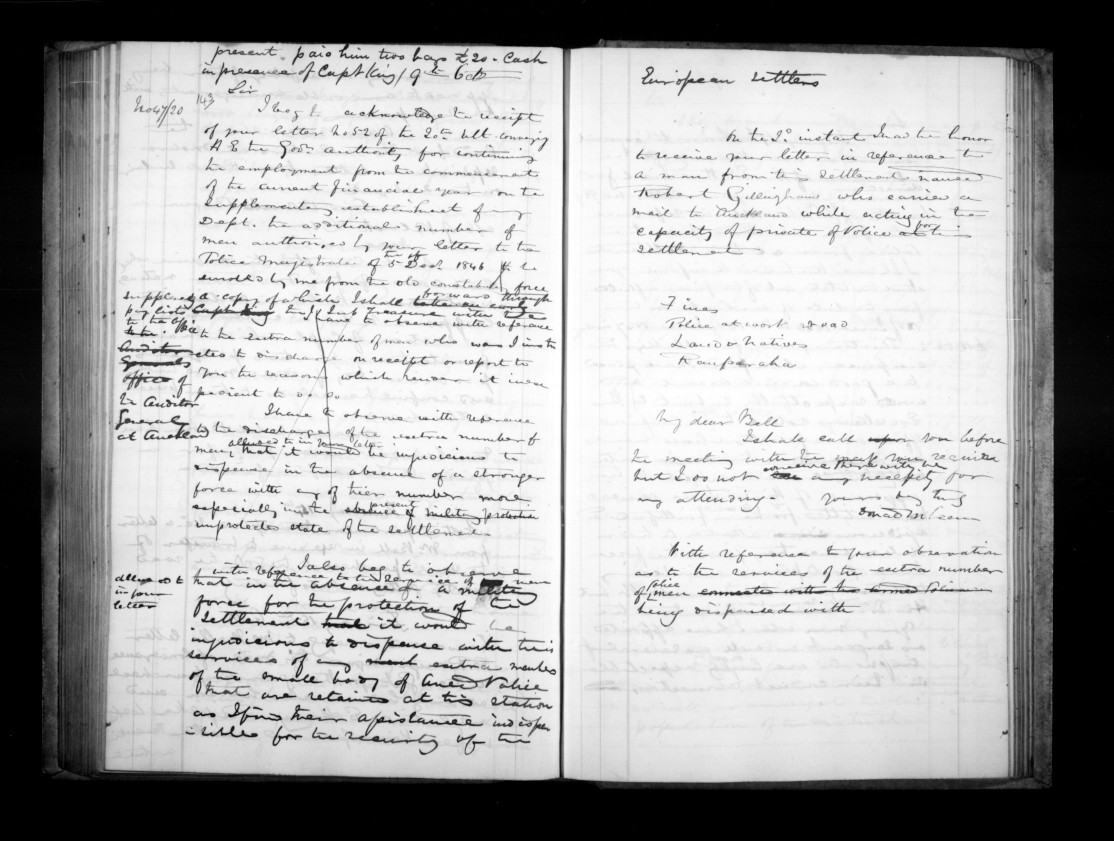 present. paid him two bags £20 - Cash
in presence of Capt King / 9th Oct
Sir
No 47/20 143
I beg to acknowledge the receipt
of your letter No 52 of the 20th Ult. conveying
H E the Govr authority for continuing
the employment from the commencement
of the current financial year on the
supplementary establishment of my
Dept. the additional number of
men authorised by your letter to the
Police Magistrate of the 5th Decr 1846 to be
enrolled by me from the old constabulary force
a copy of which I shall forward through
Capt King the Sub Treasurer with the
supplementary
pay lists
to the
office of
the Auditor
General
at Auckland
I have to observe with reference
to the extra number of men who was I instr
cted to discharge on receipt or report to
you the reasons which render it inex
pedient to do so.
I have to observe with reference
to the discharge of the extra number of
men, alluded to in your letter
that it would be injudicious to
dispense in the absence of a stronger
force with any of their number more
especially in the absence of present military protection
unprotected state of the settlement.
I also beg to observe
with reference to the service of men
alluded to
in your
letter
that in the absence of a military
force for the protection of the
settlement that it would be
injudicious to dispense with the
services of any extra number
of the small body of Armed Police
that are retained at this station
as I find their assistance indispen
-sible for the security of the
European Settlers
On the 2d instant I had the honor
to receive your letter in reference to
a man from this settlement named
Robert Gillingham who carried a
mail to Auckland while acting in the
capacity of private of Police at for this
settlement
Fines
Police at work road
Land & Natives
Rauperaha
My dear Bell
I shall call upon you before
the meeting with the mail you required
but I do not see conceive there will be any necessity for
my attending. yours very truly
Donald McLean
With reference to your observation
as to the services of the extra number
of Police men connected with the armed Police
being dispensed with